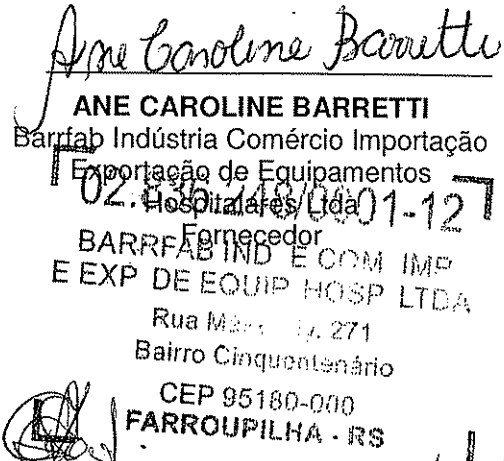 Ane Caroline Barretti
ANE CAROLINE BARRETTI
Barrfab Indústria Comércio Importação
Exportação de Equipamentos
Hospitalares Ltda
02. /0001-12
Fornecedor
BARRFAB IND E COM IMP
E EXP DE EQUIP HOSP LTDA
Rua 271
Bairro Cinquentenário
CEP 95180-000
FARROUPILHA - RS